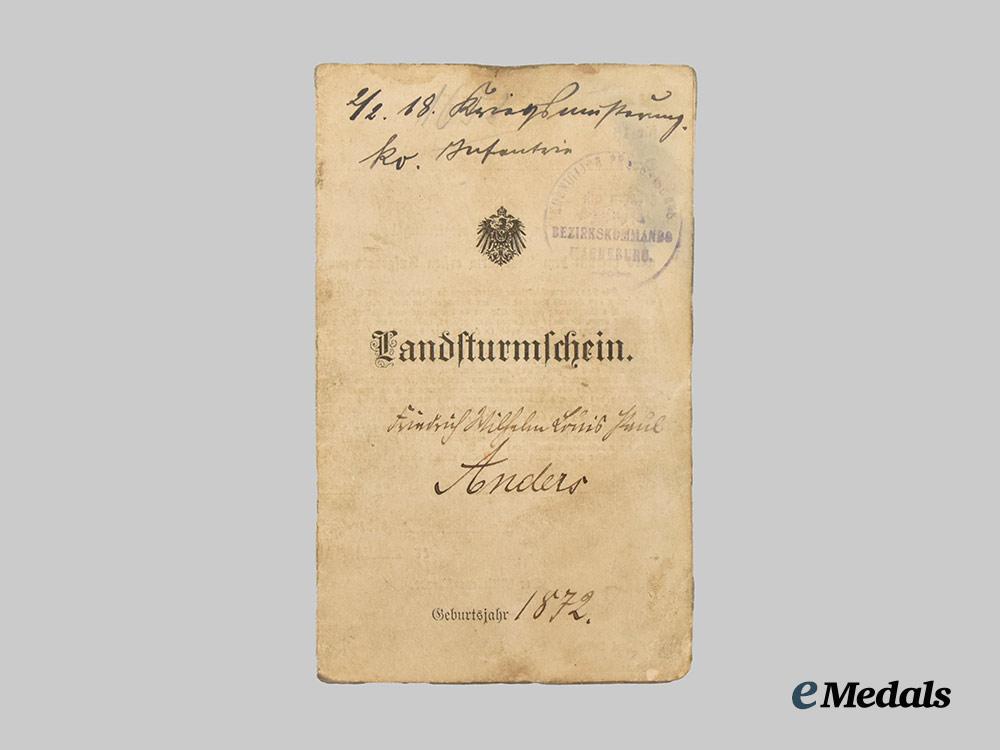 2/2. 18. Kriegsmusterung.
ko. Infantrie
BEZIRKSKOMMANDO
MAGDEBURG.
Landsturmschein.
Friedrich Wilhelm Louis Paul
Anders
Geburtsjahr 1872.
eMedals